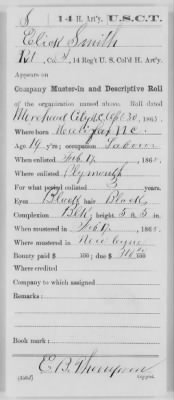 S | 14 H. Art'y. | U.S.C.T.
Elick Smith
Pvt, Co. , 14 Reg't U. S. Col'd H. Art'y.
Appears on
Company Muster-in and Descriptive Roll
of the organization named above. Roll dated
Morehead City NC, 30, 1865.
Where born N.C.
Age 19 y'rs; occupation Laborer
When enlisted 17, 186
Where enlisted Plymouth
For what period enlisted 3 years.
Eyes Black; hair Black
Complexion Blk; height 5 ft. 5 in.
When mustered in 17, 186
Where mustered in New berne
Bounty paid $ 100; due $ 100
Where credited
Company to which assigned
Remarks:
Book mark:
E. B. Thompson
Copyist.